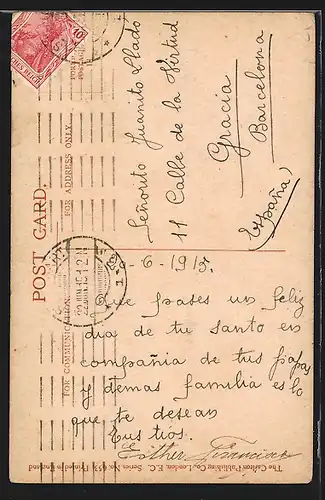 POST CARD.
FOR COMMUNICATION.
FOR ADDRESS ONLY.
Señorito Juanito Llado
11 Calle de la Virtud
Gracia
Barcelona
(España)
-6-1915.
Que pases un feliz
dia de tu santo en
compañia de tus papas
y demas familia es lo
que te desean
tus tios.
Esther Francisco
The Carlton Publishing Co., London, E.C. Series No. Printed in England
10